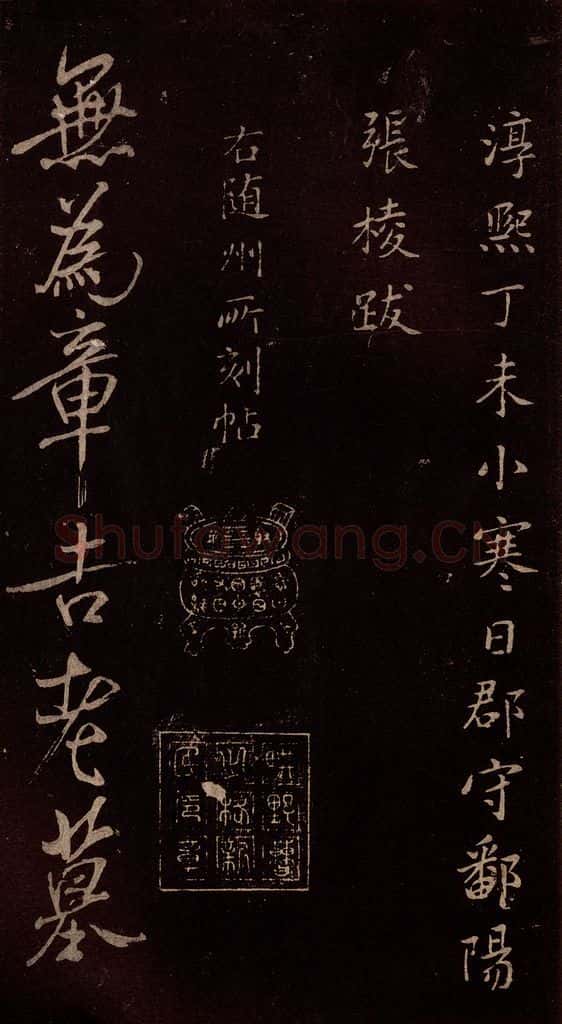 淳熙丁未小寒日郡守鄱陽
張棱跋
右随州所刻帖
無為章吉老墓
Shufawang.cn